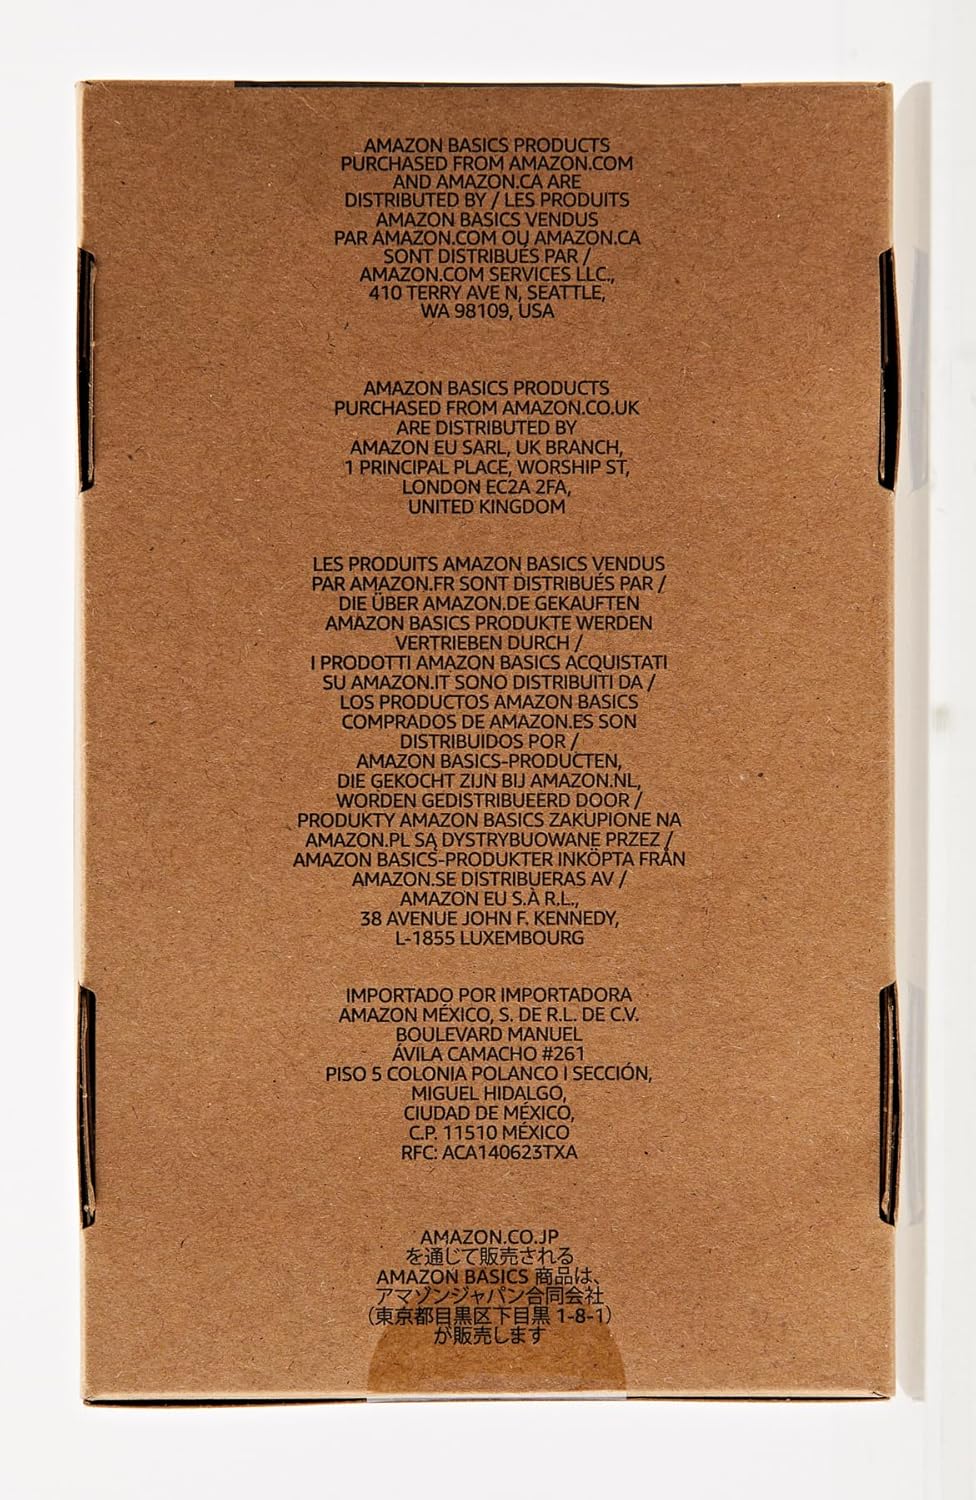 AMAZON BASICS PRODUCTS
PURCHASED FROM AMAZON.COM
AND AMAZON.CA ARE
DISTRIBUTED BY / LES PRODUITS
AMAZON BASICS VENDUS
PAR AMAZON.COM OU AMAZON.CA
SONT DISTRIBUÉS PAR /
AMAZON.COM SERVICES LLC.,
410 TERRY AVE N, SEATTLE,
WA 98109, USA
AMAZON BASICS PRODUCTS
PURCHASED FROM AMAZON.CO.UK
ARE DISTRIBUTED BY
AMAZON EU SARL, UK BRANCH,
1 PRINCIPAL PLACE, WORSHIP ST,
LONDON EC2A 2FA,
UNITED KINGDOM
LES PRODUITS AMAZON BASICS VENDUS
PAR AMAZON.FR SONT DISTRIBUÉS PAR /
DIE ÜBER AMAZON.DE GEKAUFTEN
AMAZON BASICS PRODUKTE WERDEN
VERTRIEBEN DURCH /
I PRODOTTI AMAZON BASICS ACQUISTATI
SU AMAZON.IT SONO DISTRIBUITI DA /
LOS PRODUCTOS AMAZON BASICS
COMPRADOS DE AMAZON.ES SON
DISTRIBUIDOS POR /
AMAZON BASICS-PRODUCTEN,
DIE GEKOCHT ZIJN BIJ AMAZON.NL,
WORDEN GEDISTRIBUEERD DOOR /
PRODUKTY AMAZON BASICS ZAKUPIONE NA
AMAZON.PL SĄ DYSTRYBUOWANE PRZEZ /
AMAZON BASICS-PRODUKTER INKÖPTA FRÅN
AMAZON.SE DISTRIBUERAS AV /
AMAZON EU S.À R.L.,
38 AVENUE JOHN F. KENNEDY,
L-1855 LUXEMBOURG
IMPORTADO POR IMPORTADORA
AMAZON MÉXICO, S. DE R.L. DE C.V.
BOULEVARD MANUEL
ÁVILA CAMACHO #261
PISO 5 COLONIA POLANCO I SECCIÓN,
MIGUEL HIDALGO,
CIUDAD DE MÉXICO,
C.P. 11510 MÉXICO
RFC: ACA140623TXA
AMAZON.CO.JP
を通じて販売される
AMAZON BASICS 商品は、
アマゾンジャパン合同会社
（東京都目黒区下目黒 1-8-1）
が販売します